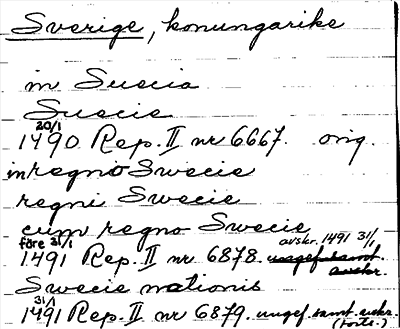 Sverige, konungarike
in Suecia
Suecie
20/1
1490 Rep. II nr 6667. orig.
in regno Swecie
regni Swecie
cum regno Swecie
före 31/1 avskr. 1491 31/1
1491 Rep. II nr 6878. ungef. samt. avskr.
Swecie nationis
31/1
1491 Rep. II nr 6879. ungef. samt. avskr.
(forts.)